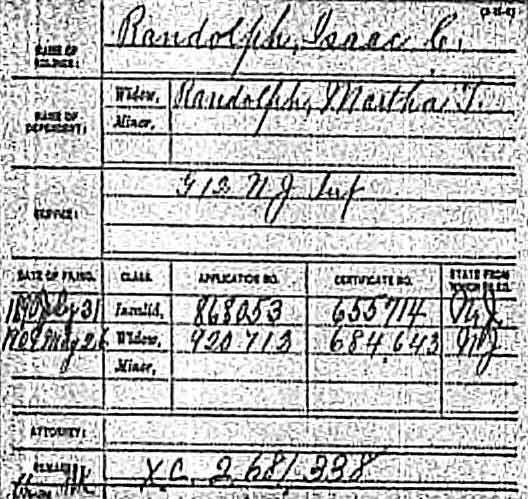 (3-35-0)
NAME OF SOLDIER: Randolph, Isaac C.
NAME OF DEPENDENT: Widow, Randolph, Martha T.
Minor,
SERVICE: G 12 N J Inf
DATE OF FILING. CLASS. APPLICATION NO. CERTIFICATE NO. STATE FROM WHICH FILED.
July 31 Invalid, 868053 655714 N.J.
1909 May 26 Widow, 920 713 684.643 NJ
Minor,
ATTORNEY:
REMARKS: X.C. 2 681 338